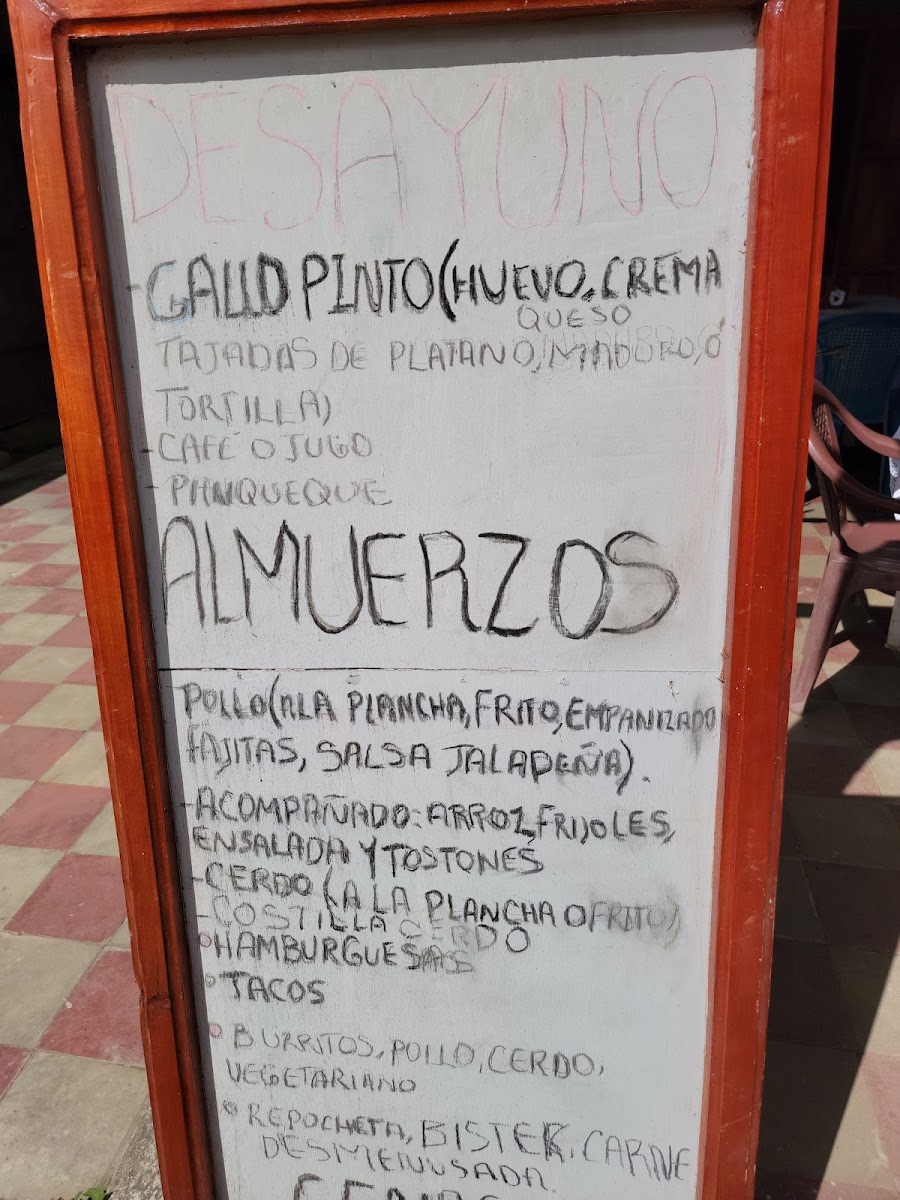 DESAYUNO
-GALLO PINTO (HUEVO, CREMA
QUESO
TAJADAS DE PLATANO, MADURO, Ó
TORTILLA)
-CAFÉ O JUGO
- PANQUEQUE
ALMUERZOS
POLLO (A LA PLANCHA, FRITO, EMPANIZADO
FAJITAS, SALSA JALADEÑA).
-ACOMPAÑADO: ARROZ, FRIJOLES,
ENSALADA Y TOSTONES
-CERDO (A LA PLANCHA O FRITO)
-COSTILLA CERDO
°HAMBURGUESAS
°TACOS
°BURRITOS, POLLO, CERDO,
VEGETARIANO
°REPOCHETA, BISTEK, CARNE
DESMENUSADA.